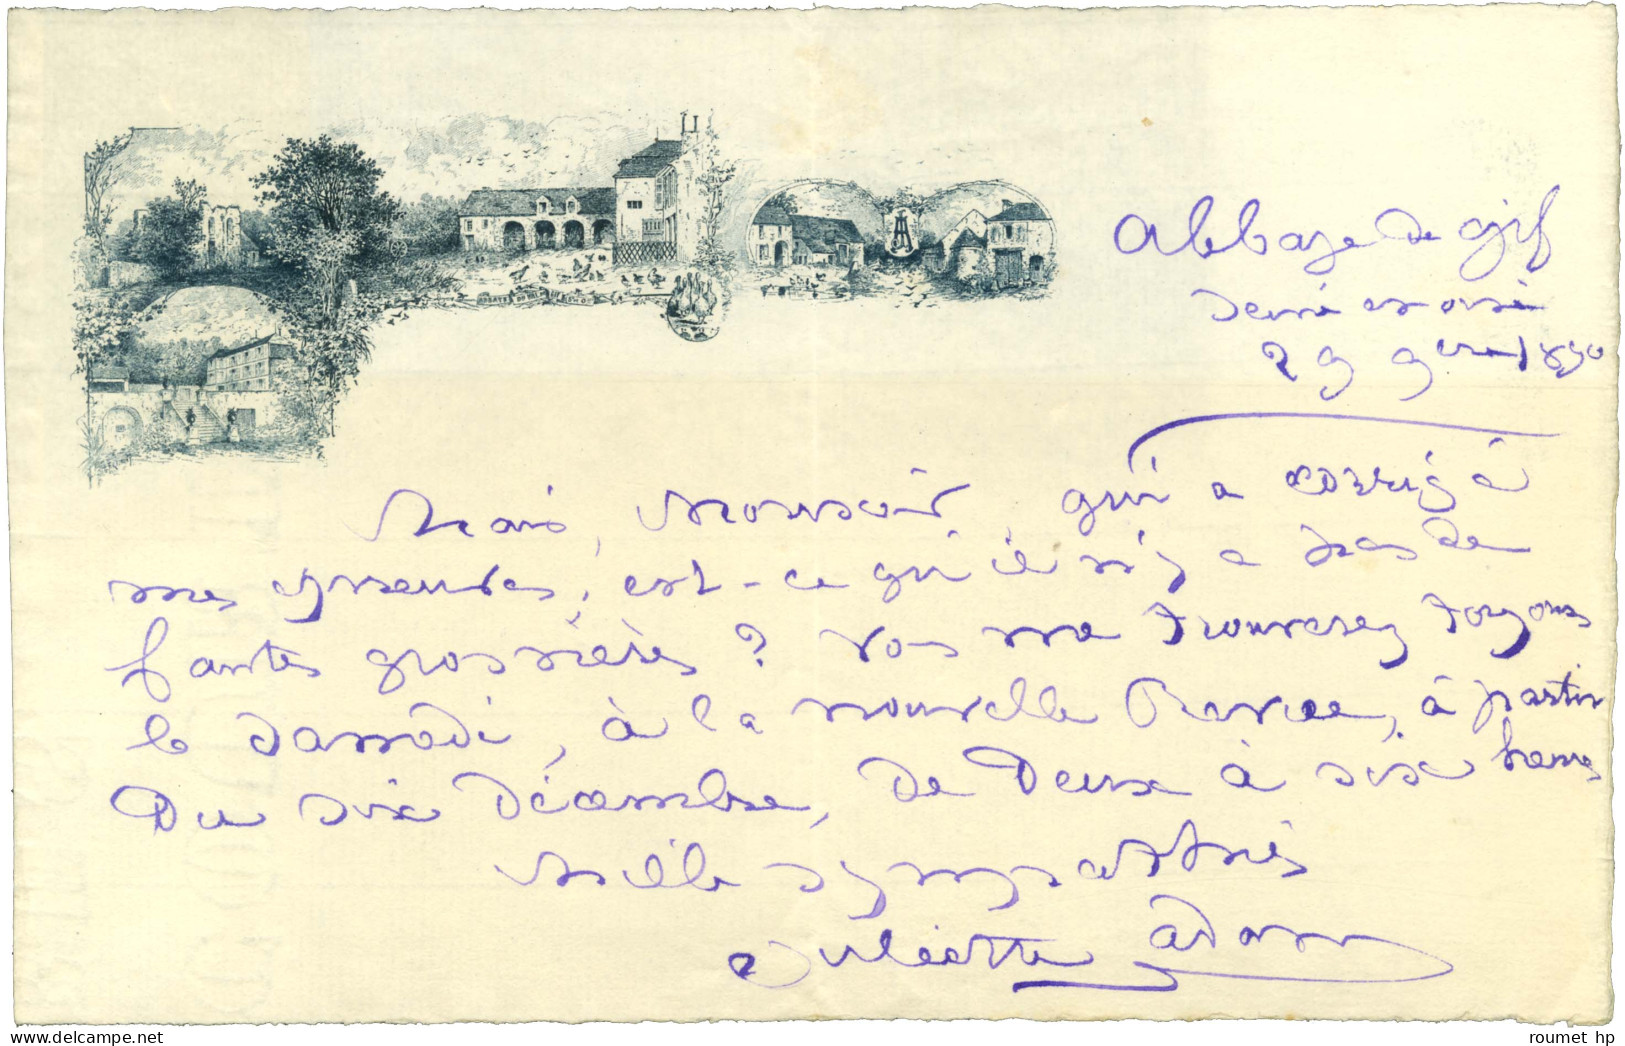 Abbaye de Gif
Seine et Oise
29 9bre 1890
Mais, Monsieur, qui a corrigé
mes épreuves, est-ce qu'il n'y a pas de
fautes grossières ? Vos me trouverez toujours
le samedi, à la nouvelle Revue, à partir
Du six Décembre, de Deux à six heures
Mille sympathies
Juliette Adam
roumet hp